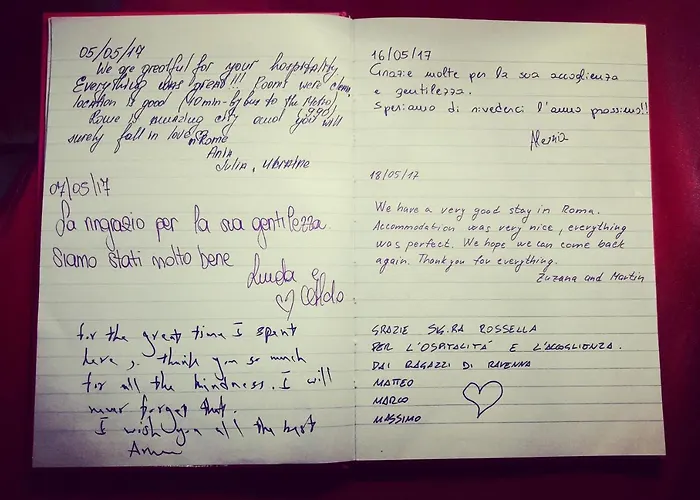 05/05/17
We are greatful for your hospitality
Everything was great!!! Rooms were clean,
location is good (10min-by bus to the Metro)
Rome is amazing city and you will
surely fall in love in Rome
Ania
Julia, Ukraine
07/05/17
La ringrazio per la sua gentilezza
Siamo stati molto bene
Aldo
for the great time I spent
here, thank you so much
for all the kindness. I will
never forget that.
I wish you all the best
16/05/17
Grazie molte per la sua accoglienza
e gentilezza.
Speriamo di rivederci l'anno prossimo!!
Alessia
18/05/17
We have a very good stay in Roma.
Accommodation was very nice, everything
was perfect. We hope we can come back
again. Thank you for everything.
Zuzana and Martin
GRAZIE SIG.RA ROSSELLA
PER L'OSPITALITÁ E L'ACCOGLIENZA.
DAI RAGAZZI DI RAVENNA
MATTEO
MARCO
MASSIMO